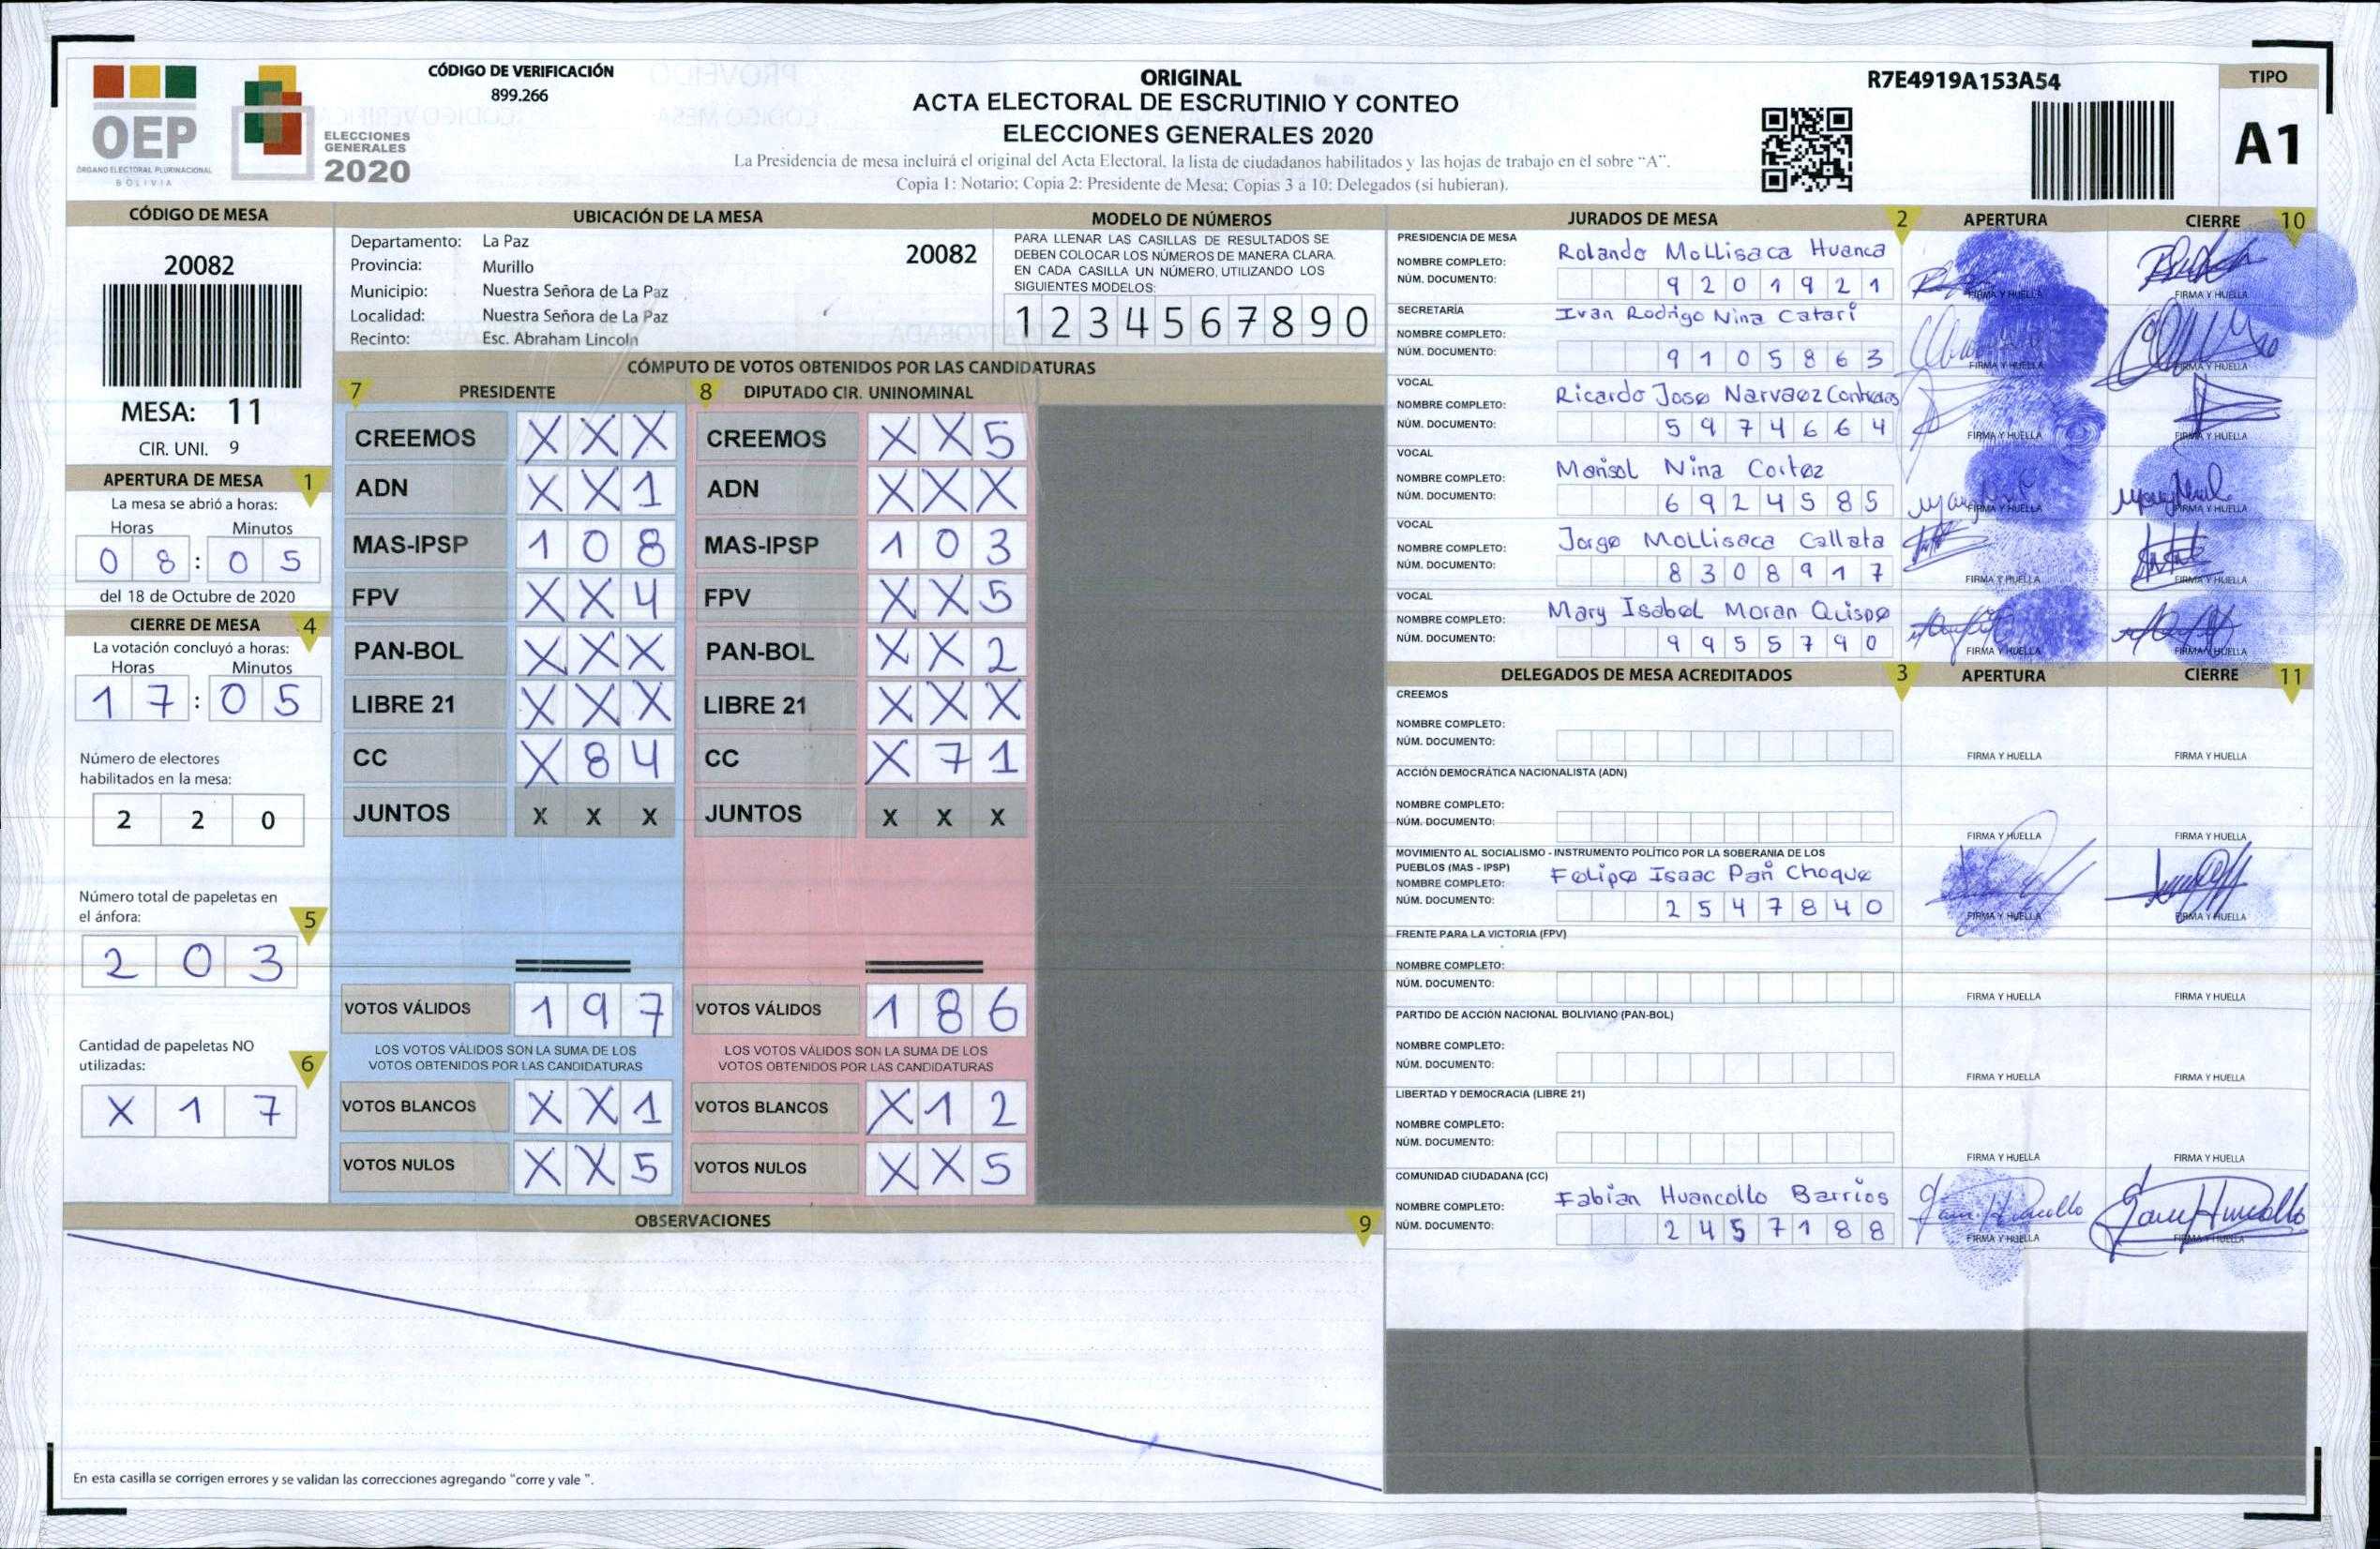 OEP
ÓRGANO ELECTORAL PLURINACIONAL
BOLIVIA
ELECCIONES
GENERALES
2020
CÓDIGO DE VERIFICACIÓN
899.266
ORIGINAL
ACTA ELECTORAL DE ESCRUTINIO Y CONTEO
ELECCIONES GENERALES 2020
La Presidencia de mesa incluirá el original del Acta Electoral, la lista de ciudadanos habilitados y las hojas de trabajo en el sobre "A".
Copia 1: Notario; Copia 2: Presidente de Mesa; Copias 3 a 10: Delegados (si hubieran).
R7E4919A153A54
TIPO
A1
CÓDIGO DE MESA
20082
MESA: 11
CIR. UNI. 9
APERTURA DE MESA 1
La mesa se abrió a horas:
Horas Minutos
0 8 : 0 5
del 18 de Octubre de 2020
CIERRE DE MESA 4
La votación concluyó a horas:
Horas Minutos
1 7 : 0 5
Número de electores
habilitados en la mesa:
2 2 0
Número total de papeletas en
el ánfora: 5
2 0 3
Cantidad de papeletas NO
utilizadas: 6
X 1 7
UBICACIÓN DE LA MESA
Departamento: La Paz 20082
Provincia: Murillo
Municipio: Nuestra Señora de La Paz
Localidad: Nuestra Señora de La Paz
Recinto: Esc. Abraham Lincoln
MODELO DE NÚMEROS
PARA LLENAR LAS CASILLAS DE RESULTADOS SE
DEBEN COLOCAR LOS NÚMEROS DE MANERA CLARA.
EN CADA CASILLA UN NÚMERO, UTILIZANDO LOS
SIGUIENTES MODELOS:
1 2 3 4 5 6 7 8 9 0
CÓMPUTO DE VOTOS OBTENIDOS POR LAS CANDIDATURAS
7 PRESIDENTE 8 DIPUTADO CIR. UNINOMINAL
CREEMOS X X X CREEMOS X X 5
ADN X X 1 ADN X X X
MAS-IPSP 1 0 8 MAS-IPSP 1 0 3
FPV X X 4 FPV X X 5
PAN-BOL X X X PAN-BOL X X 2
LIBRE 21 X X X LIBRE 21 X X X
CC X 8 4 CC X 7 1
JUNTOS X X X JUNTOS X X X
VOTOS VÁLIDOS 1 9 7 VOTOS VÁLIDOS 1 8 6
LOS VOTOS VÁLIDOS SON LA SUMA DE LOS LOS VOTOS VÁLIDOS SON LA SUMA DE LOS
VOTOS OBTENIDOS POR LAS CANDIDATURAS VOTOS OBTENIDOS POR LAS CANDIDATURAS
VOTOS BLANCOS X X 1 VOTOS BLANCOS X 1 2
VOTOS NULOS X X 5 VOTOS NULOS X X 5
OBSERVACIONES 9
En esta casilla se corrigen errores y se validan las correcciones agregando "corre y vale ".
JURADOS DE MESA 2 APERTURA CIERRE 10
PRESIDENCIA DE MESA
NOMBRE COMPLETO: Rolando Mollisaca Huanca
NÚM. DOCUMENTO: 9 2 0 1 9 2 1 FIRMA Y HUELLA FIRMA Y HUELLA
SECRETARÍA
NOMBRE COMPLETO: Ivan Rodrigo Nina Catari
NÚM. DOCUMENTO: 9 1 0 5 8 6 3 FIRMA Y HUELLA FIRMA Y HUELLA
VOCAL
NOMBRE COMPLETO: Ricardo Jose Narvaez Contreras
NÚM. DOCUMENTO: 5 9 7 4 6 6 4 FIRMA Y HUELLA FIRMA Y HUELLA
VOCAL
NOMBRE COMPLETO: Marisol Nina Cortez
NÚM. DOCUMENTO: 6 9 2 4 5 8 5 FIRMA Y HUELLA FIRMA Y HUELLA
VOCAL
NOMBRE COMPLETO: Jorge Mollisaca Callata
NÚM. DOCUMENTO: 8 3 0 8 9 1 7 FIRMA Y HUELLA FIRMA Y HUELLA
VOCAL
NOMBRE COMPLETO: Mary Isabel Moran Quispe
NÚM. DOCUMENTO: 9 9 5 5 7 9 0 FIRMA Y HUELLA FIRMA Y HUELLA
DELEGADOS DE MESA ACREDITADOS 3 APERTURA CIERRE 11
CREEMOS
NOMBRE COMPLETO:
NÚM. DOCUMENTO: FIRMA Y HUELLA FIRMA Y HUELLA
ACCIÓN DEMOCRÁTICA NACIONALISTA (ADN)
NOMBRE COMPLETO:
NÚM. DOCUMENTO: FIRMA Y HUELLA FIRMA Y HUELLA
MOVIMIENTO AL SOCIALISMO - INSTRUMENTO POLÍTICO POR LA SOBERANIA DE LOS
PUEBLOS (MAS - IPSP)
NOMBRE COMPLETO: Felipe Isaac Pañ Choque
NÚM. DOCUMENTO: 2 5 4 7 8 4 0 FIRMA Y HUELLA FIRMA Y HUELLA
FRENTE PARA LA VICTORIA (FPV)
NOMBRE COMPLETO:
NÚM. DOCUMENTO: FIRMA Y HUELLA FIRMA Y HUELLA
PARTIDO DE ACCIÓN NACIONAL BOLIVIANO (PAN-BOL)
NOMBRE COMPLETO:
NÚM. DOCUMENTO: FIRMA Y HUELLA FIRMA Y HUELLA
LIBERTAD Y DEMOCRACIA (LIBRE 21)
NOMBRE COMPLETO:
NÚM. DOCUMENTO: FIRMA Y HUELLA FIRMA Y HUELLA
COMUNIDAD CIUDADANA (CC)
NOMBRE COMPLETO: Fabian Huancollo Barrios
NÚM. DOCUMENTO: 2 4 5 7 1 8 8 FIRMA Y HUELLA FIRMA Y HUELLA